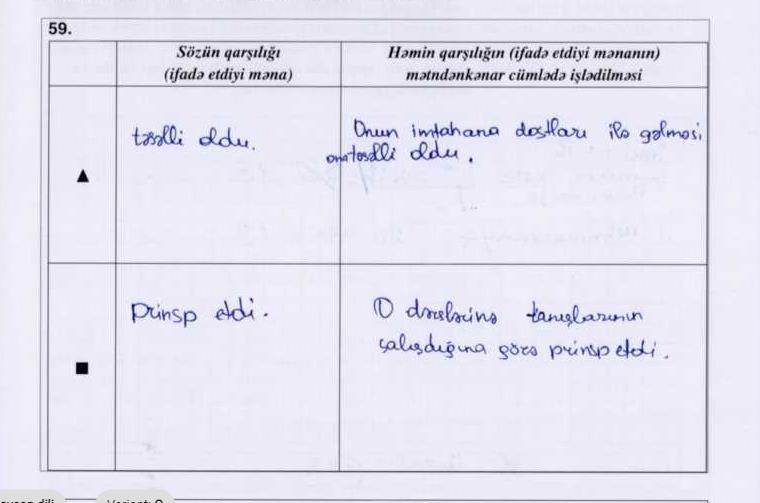 59.
Sözün qarşılığı
(ifadə etdiyi məna)
Həmin qarşılığın (ifadə etdiyi mənanın)
mətndənkənar cümlədə işlədilməsi
▲
təsəlli oldu.
Onun imtahana dostları ilə gəlməsi
ona təsəlli oldu.
■
prinsp etdi.
O dərslərinə tanışlarının
çalışdığına görə prinsp etdi.